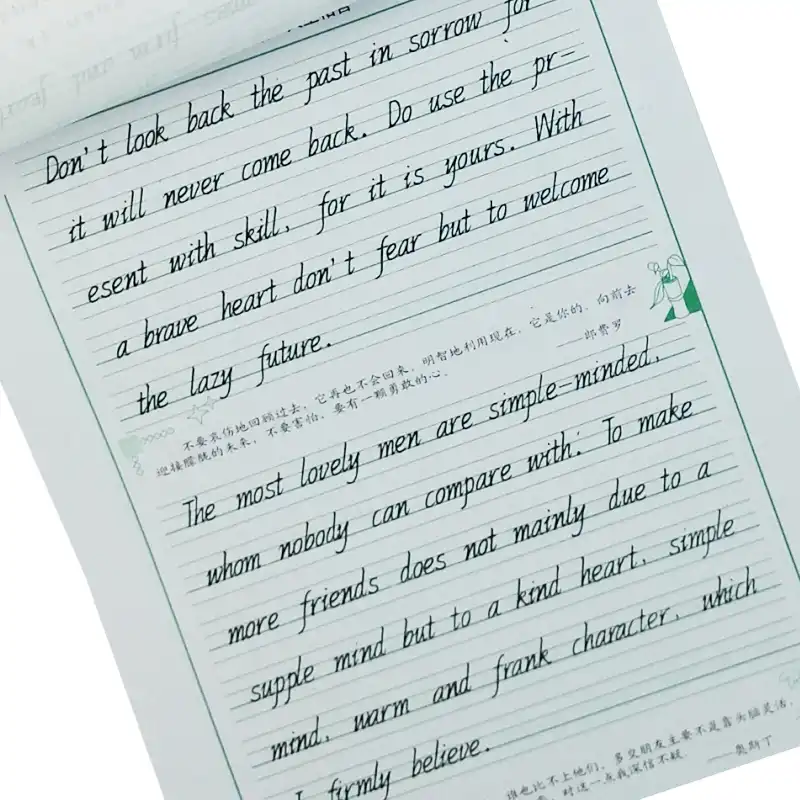 Don't look back the past in sorrow for
it will never come back. Do use the pr-
esent with skill, for it is yours. With
a brave heart don't fear but to welcome
the lazy future.
不要哀伤地回顾过去，它再也不会回来，明智地利用现在，它是你的，向前去
迎接朦胧的未来，不要害怕，要有一颗勇敢的心。 ——郎费罗
The most lovely men are simple-minded,
whom nobody can compare with: To make
more friends does not mainly due to a
supple mind but to a kind heart, simple
mind, warm and frank character, which
I firmly believe.
谁也比不上他们，多交朋友主要不是靠头脑灵活，
对这一点我深信不疑 ——奥斯丁